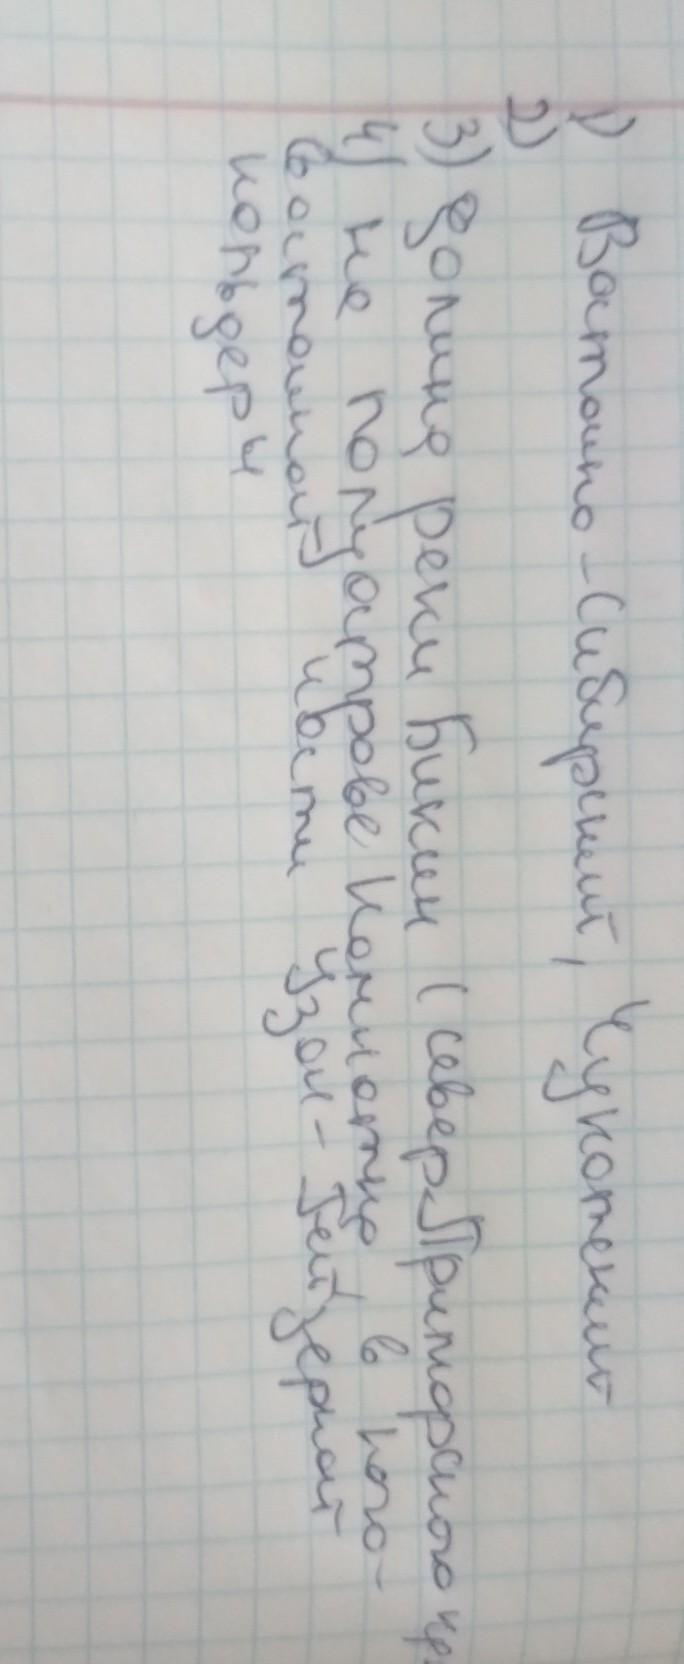 1) Восточно-Сибирский, Чукотский
2)
3) долина реки Бикин (север Приморского кр
4) на полуострове Камчатка в юго-
восточной части Узон-Гейзерной
кальдеры